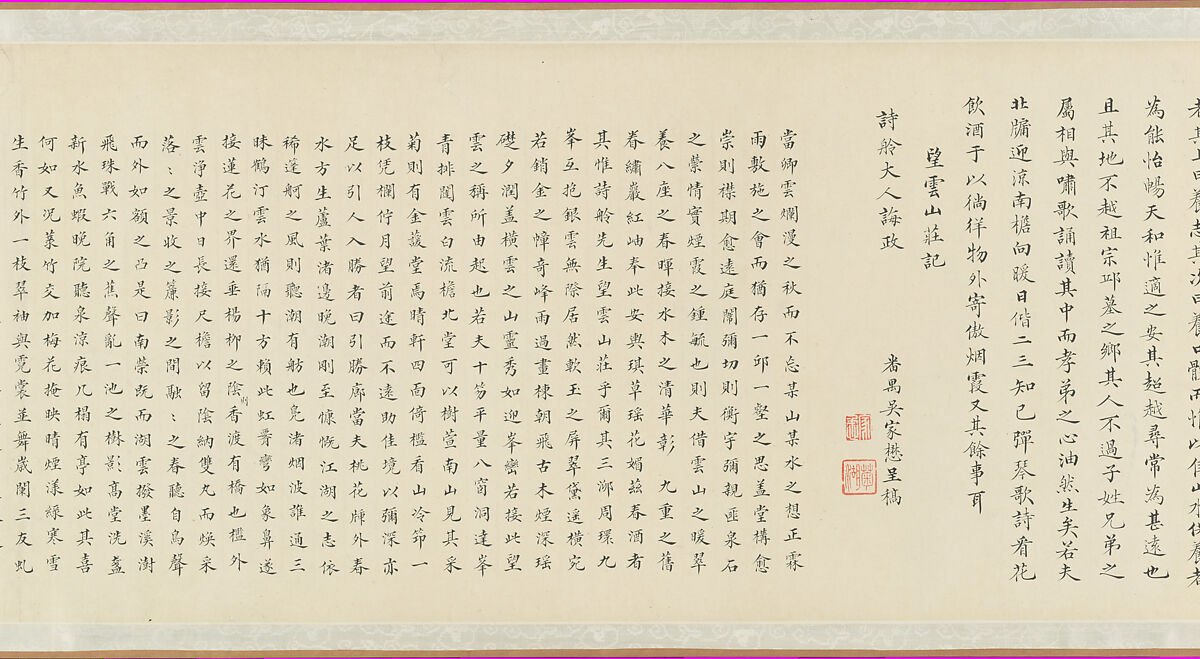 為能怡暢天和惟適之安其超越尋常為甚遠也
且其地不越祖宗邱墓之鄉其人不過子姓兄弟之
屬相與嘯歌誦讀其中而孝弟之心油然生矣若夫
北牖迎涼南檐向暖日偕二三知已彈琴歌詩看花
飲酒于以徜徉物外寄傲烟霞又其餘事耳
望雲山莊記
詩舲大人誨政
番禺吳家懋呈稿
當卿雲爛漫之秋而不忘某山某水之想正霖
雨敷施之會而猶存一邱一壑之思蓋堂構愈
崇則襟期愈遠庭闈彌切則衡宇彌親匪泉石
之縈情實煙霞之鍾毓也則夫借雲山之暖翠
養八座之春暉接水木之清華彰九重之舊
眷繡巖紅岫奉此安輿琪草瑶花媚茲春酒者
其惟詩舲先生望雲山莊乎爾其三泖周環九
峯互抱銀雲無際居然軟玉之屏翠黛遥橫宛
若銷金之幛奇峰雨過畫棟朝飛古木煙深瑶
礎夕潤蓋橫雲之山靈秀如迎峯巒若接此望
雲之稱所由起也若夫十笏平量八窗洞達峯
青排闥雲白流檐北堂可以樹萱南山見其采
菊則有金薤堂焉晴軒四面倚檻看山冷節一
枝凭欄佇月望前途而不遠助佳境以彌深亦
足以引人入勝者曰引勝廊當夫桃花牌外春
水方生蘆葉渚邊晚潮剛至慷慨江湖之志依
稀蓬舸之風則聽潮有舫也凫渚烟波誰通三
昧鶴汀雲水猶隔十方賴此虹霄彎如象鼻遂
接蓮花之界還垂楊柳之陰則香渡有橋也檻外
雲浄壺中日長接尺檐以留陰納雙丸而煥采
落〻之景收之簾影之間融〻之春聽自鳥聲
而外如額之凸是曰南榮既而湖雲撥墨溪澍
飛珠戰六角之蕉聲亂一池之樹影高堂洗盞
新水魚蝦晚院聽泉涼痕几榻有亭如此其喜
何如又況菉竹交加梅花掩映晴煙漾綠寒雪
生香竹外一枝翠袖與霓裳並舞歲闌三友虬